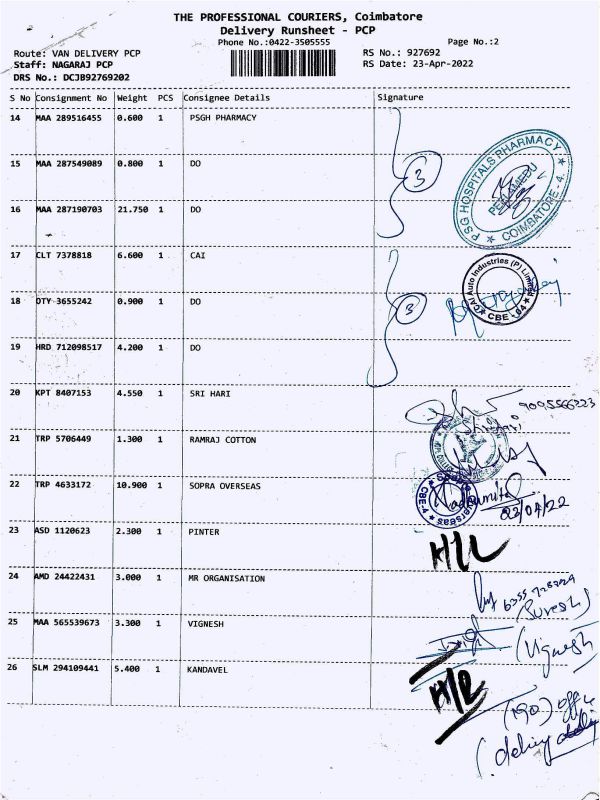 THE PROFESSIONAL COURIERS, Coimbatore
Delivery Runsheet - PCP
Phone No.:0422-3505555
Page No.:2
Route: VAN DELIVERY PCP
RS No.: 927692
Staff: NAGARAJ PCP
RS Date: 23-Apr-2022
DRS No.: DCJB92769202
S No Consignment No Weight PCS Consignee Details Signature
14 MAA 289516455 0.600 1 PSGH PHARMACY
15 MAA 287549089 0.800 1 DO
3
PSG HOSPITALS PHARMACY
PEELAMEDU
COIMBATORE - 4.
16 MAA 287190703 21.750 1 DO
17 CLT 7378818 6.600 1 CAI
CAI Auto Industries (P) Limited
CBE - 04
18 OTY 3655242 0.900 1 DO
3
19 HRD 712098517 4.200 1 DO
20 KPT 8407153 4.550 1 SRI HARI
9095566223
21 TRP 5706449 1.300 1 RAMRAJ COTTON
22 TRP 4633172 10.900 1 SOPRA OVERSEAS
CBE-4
02/04/22
23 ASD 1120623 2.300 1 PINTER
24 AMD 24422431 3.000 1 MR ORGANISATION
(Suresh)
25 MAA 565539673 3.300 1 VIGNESH
(Vignesh
26 SLM 294109441 5.400 1 KANDAVEL
office